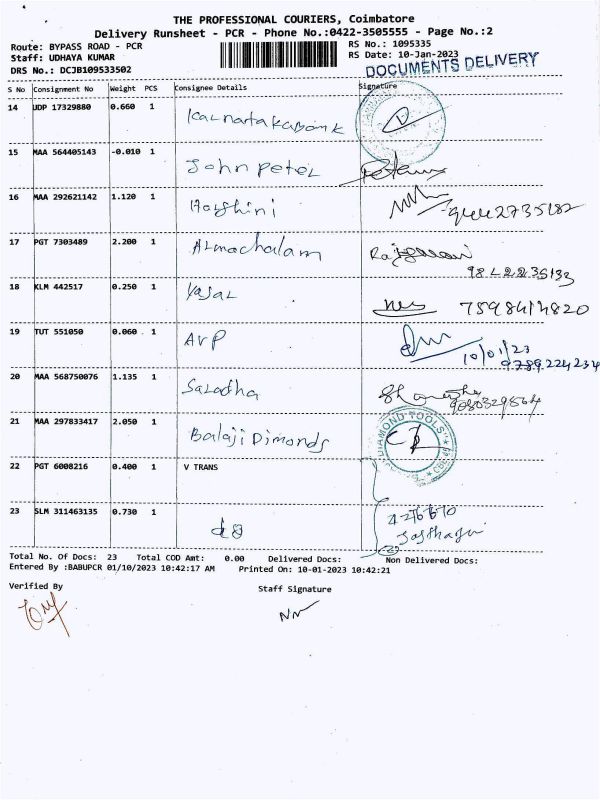 THE PROFESSIONAL COURIERS, Coimbatore
Delivery Runsheet - PCR - Phone No.:0422-3505555 - Page No.:2
Route: BYPASS ROAD - PCR
RS No.: 1095335
Staff: UDHAYA KUMAR
RS Date: 10-Jan-2023
DRS No.: DCJB109533502
DOCUMENTS DELIVERY
S No Consignment No Weight PCS Consignee Details Signature
14 UDP 17329880 0.660 1 Karnataka Bank
15 MAA 564405143 -0.010 1 John Peter
16 MAA 292621142 1.120 1 Harshini
17 PGT 7303489 2.200 1
18 KLM 442517 0.250 1
19 TUT 551050 0.060 1 AVP 10/01/23
9789224234
20 MAA 568750076 1.135 1
21 MAA 297833417 2.050 1 Balaji Dimonds DIAMOND TOOLS
22 PGT 6008216 0.400 1 V TRANS
23 SLM 311463135 0.730 1
Total No. Of Docs: 23 Total COD Amt: 0.00 Delivered Docs: Non Delivered Docs:
Entered By :BABUPCR 01/10/2023 10:42:17 AM Printed On: 10-01-2023 10:42:21
Verified By
Staff Signature